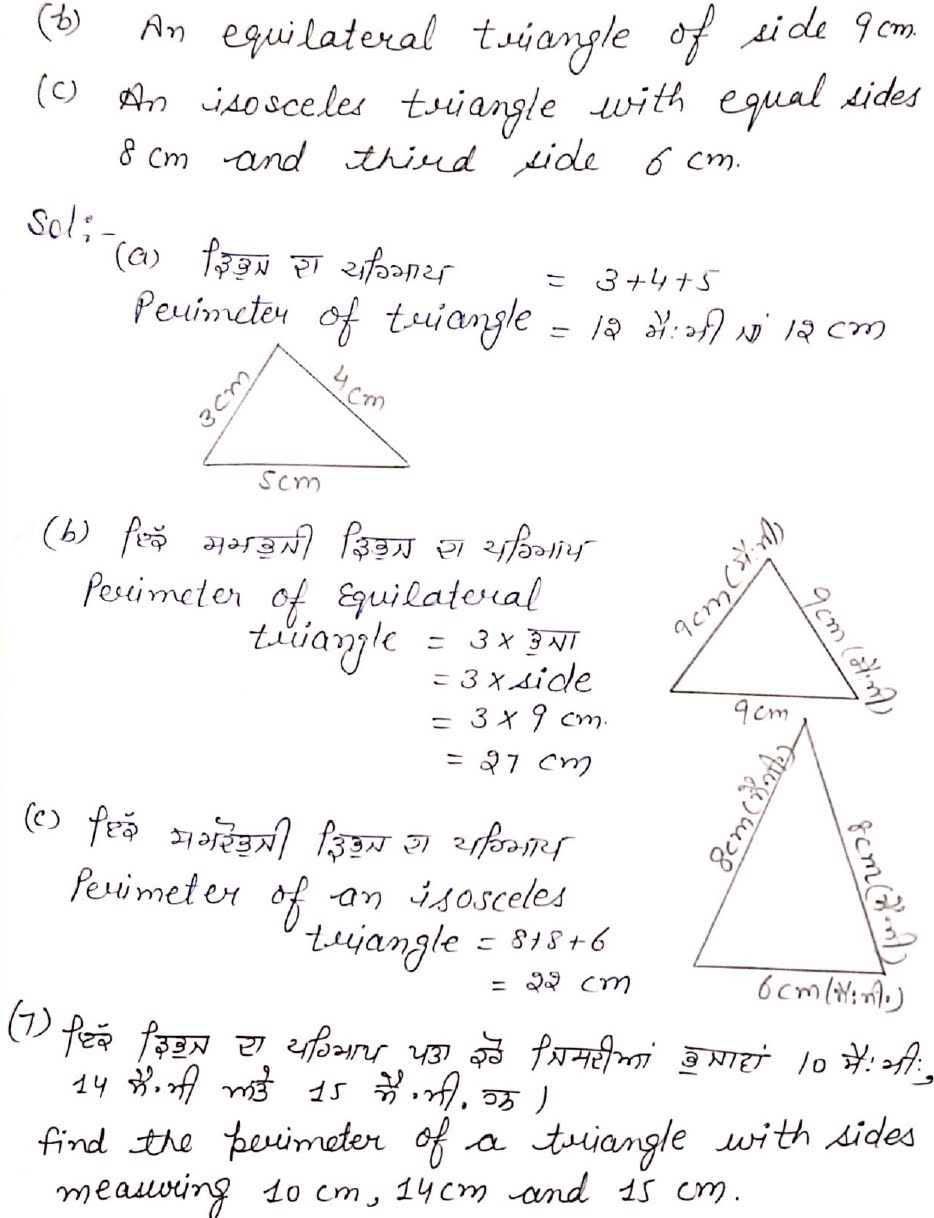 (b) An equilateral triangle of side 9 cm.
(c) An isosceles triangle with equal sides
8 cm and third side 6 cm.
Sol:-
(a) ਤ੍ਰਿਭੁਜ ਦਾ ਪਰਿਮਾਪ = 3+4+5
Perimeter of triangle = 12 ਸੈਂ:ਮੀ ਜਾਂ 12 cm
3cm
4cm
5cm
(b) ਇੱਕ ਸਮਭੁਜੀ ਤ੍ਰਿਭੁਜ ਦਾ ਪਰਿਮਾਪ
Perimeter of Equilateral
triangle = 3 x ਭੁਜਾ
= 3 x side
= 3 x 9 cm.
= 27 cm
9cm (ਸੈਂ:ਮੀ)
9cm (ਸੈਂ:ਮੀ)
9cm
(c) ਇੱਕ ਸਮਦੋਭੁਜੀ ਤ੍ਰਿਭੁਜ ਦਾ ਪਰਿਮਾਪ
Perimeter of an isosceles
triangle = 8+8+6
= 22 cm
8cm (ਸੈਂ:ਮੀ:)
8cm (ਸੈਂ:ਮੀ)
6cm (ਸੈਂ:ਮੀ.)
(7) ਇੱਕ ਤ੍ਰਿਭੁਜ ਦਾ ਪਰਿਮਾਪ ਪਤਾ ਕਰੋ ਜਿਸਦੀਆਂ ਭੁਜਾਵਾਂ 10 ਸੈਂ:ਮੀ:,
14 ਸੈਂ.ਮੀ ਅਤੇ 15 ਸੈਂ.ਮੀ. ਹਨ।
find the perimeter of a triangle with sides
measuring 10 cm, 14cm and 15 cm.